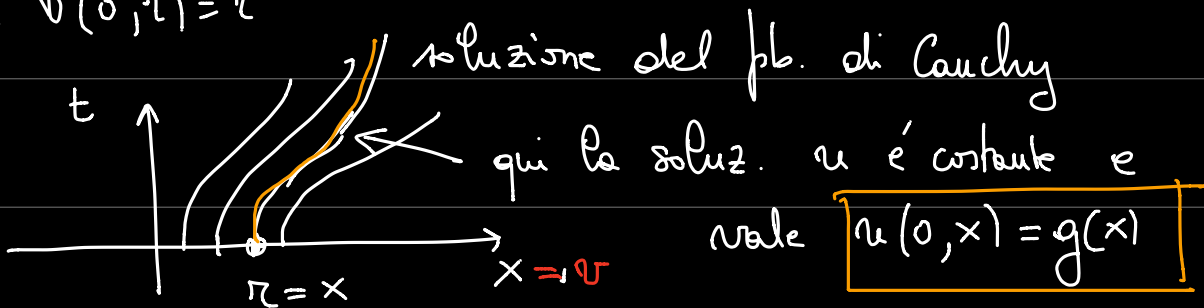 v(0,r)=r
soluzione del pb. di Cauchy
t
qui la soluz. u é costante e
vale u(0,x)=g(x)
x=v
r=x